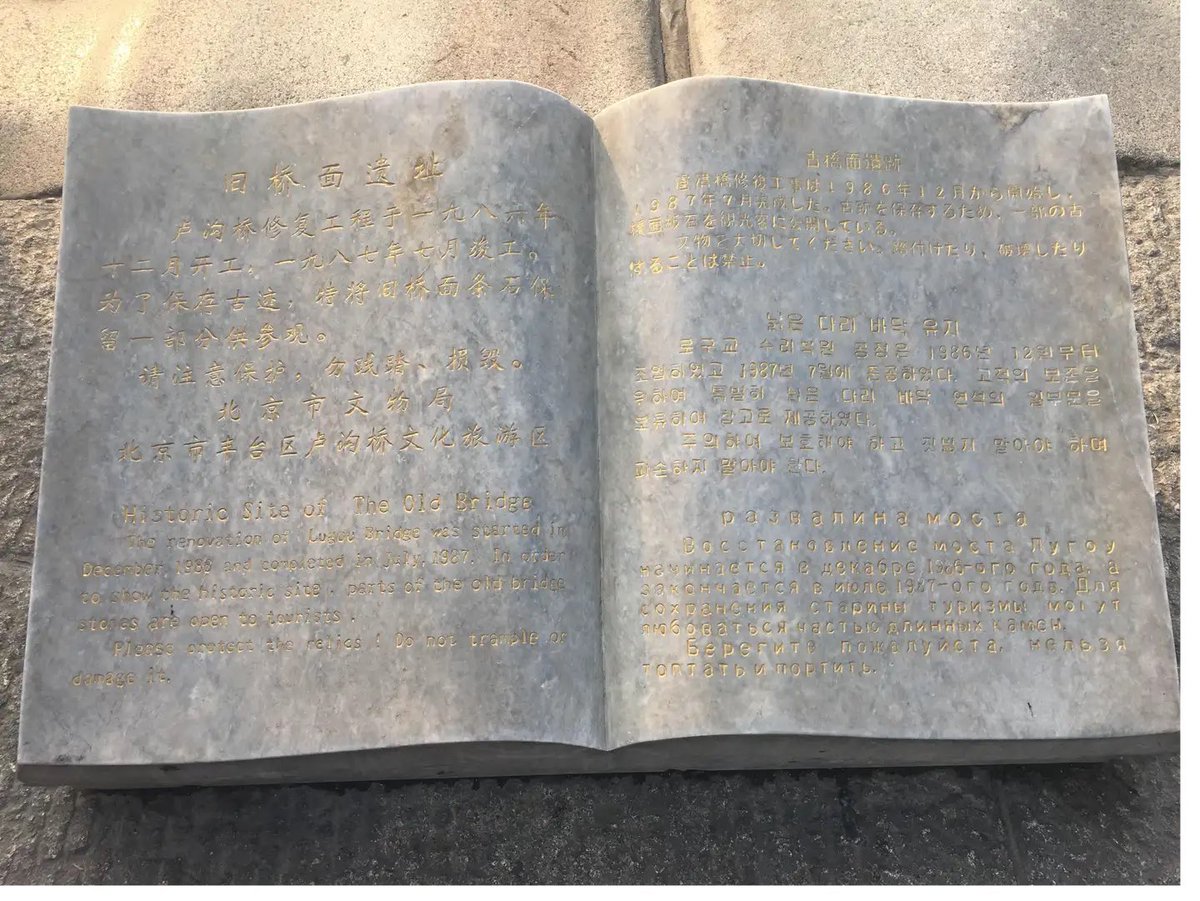 旧桥面遗址
卢沟桥修复工程于一九八六年
十二月开工，一九八七年七月竣工。
为了保存古迹，特将旧桥面条石保
留一部分供参观。
请注意保护，勿践踏、损毁。
北京市文物局
北京市丰台区卢沟桥文化旅游区
Historic Site of The Old Bridge
The renovation of Lugou Bridge was started in
December, 1986 and completed in July, 1987. In order
to show the historic site, parts of the old bridge
stones are open to tourists.
Please protect the relics! Do not trample or
damage it.
古橋面遺跡
橋修復工事は1986年12月から開始し、
1987年7月完成した。古跡を保存するため、一部の古
橋面 石を観光客に公開している。
文物を大切してください。踏付けたり、破壊したり
することは禁止。
낡은 다리 바닥 유지
로구교 수리복원 공정은 1986년 12월부터
조업하였고 1987년 7월에 준공하였다. 고적의 보존을
위하여 특별히 낡은 다리 바닥 연석의 일부분을
보류하여 참고로 제공하였다.
주의하여 보호해야 하고 짓밟지 말아야 하며
파손하지 말아야 한다.
развалина моста
Восстановление моста Лугоу
начинается в декабре 1986-ого года, а
закончается в июле 1987-ого года. Для
сохранения старины туризмы могут
любоваться частью длинных камен.
Берегите пожалуйста, нельзя
топтать и портить.